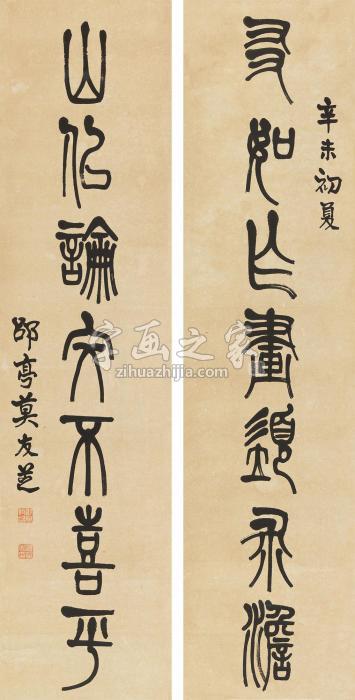 辛未初夏
友如乍畫須求澹
山似論文不喜平
郘亭莫友芝
字画之家
zihuazhijia.com